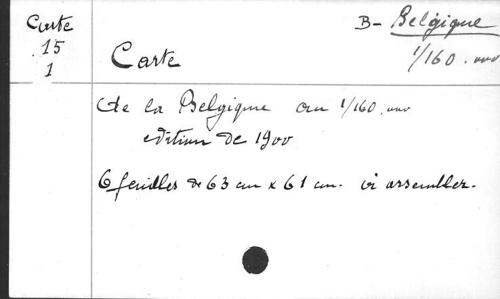 Carte
15
1
B- Belgique
1/160.000
Carte
de la Belgique au 1/160.000
edition de 1900
6 feuilles de 63 cm x 61 cm. à assembler.